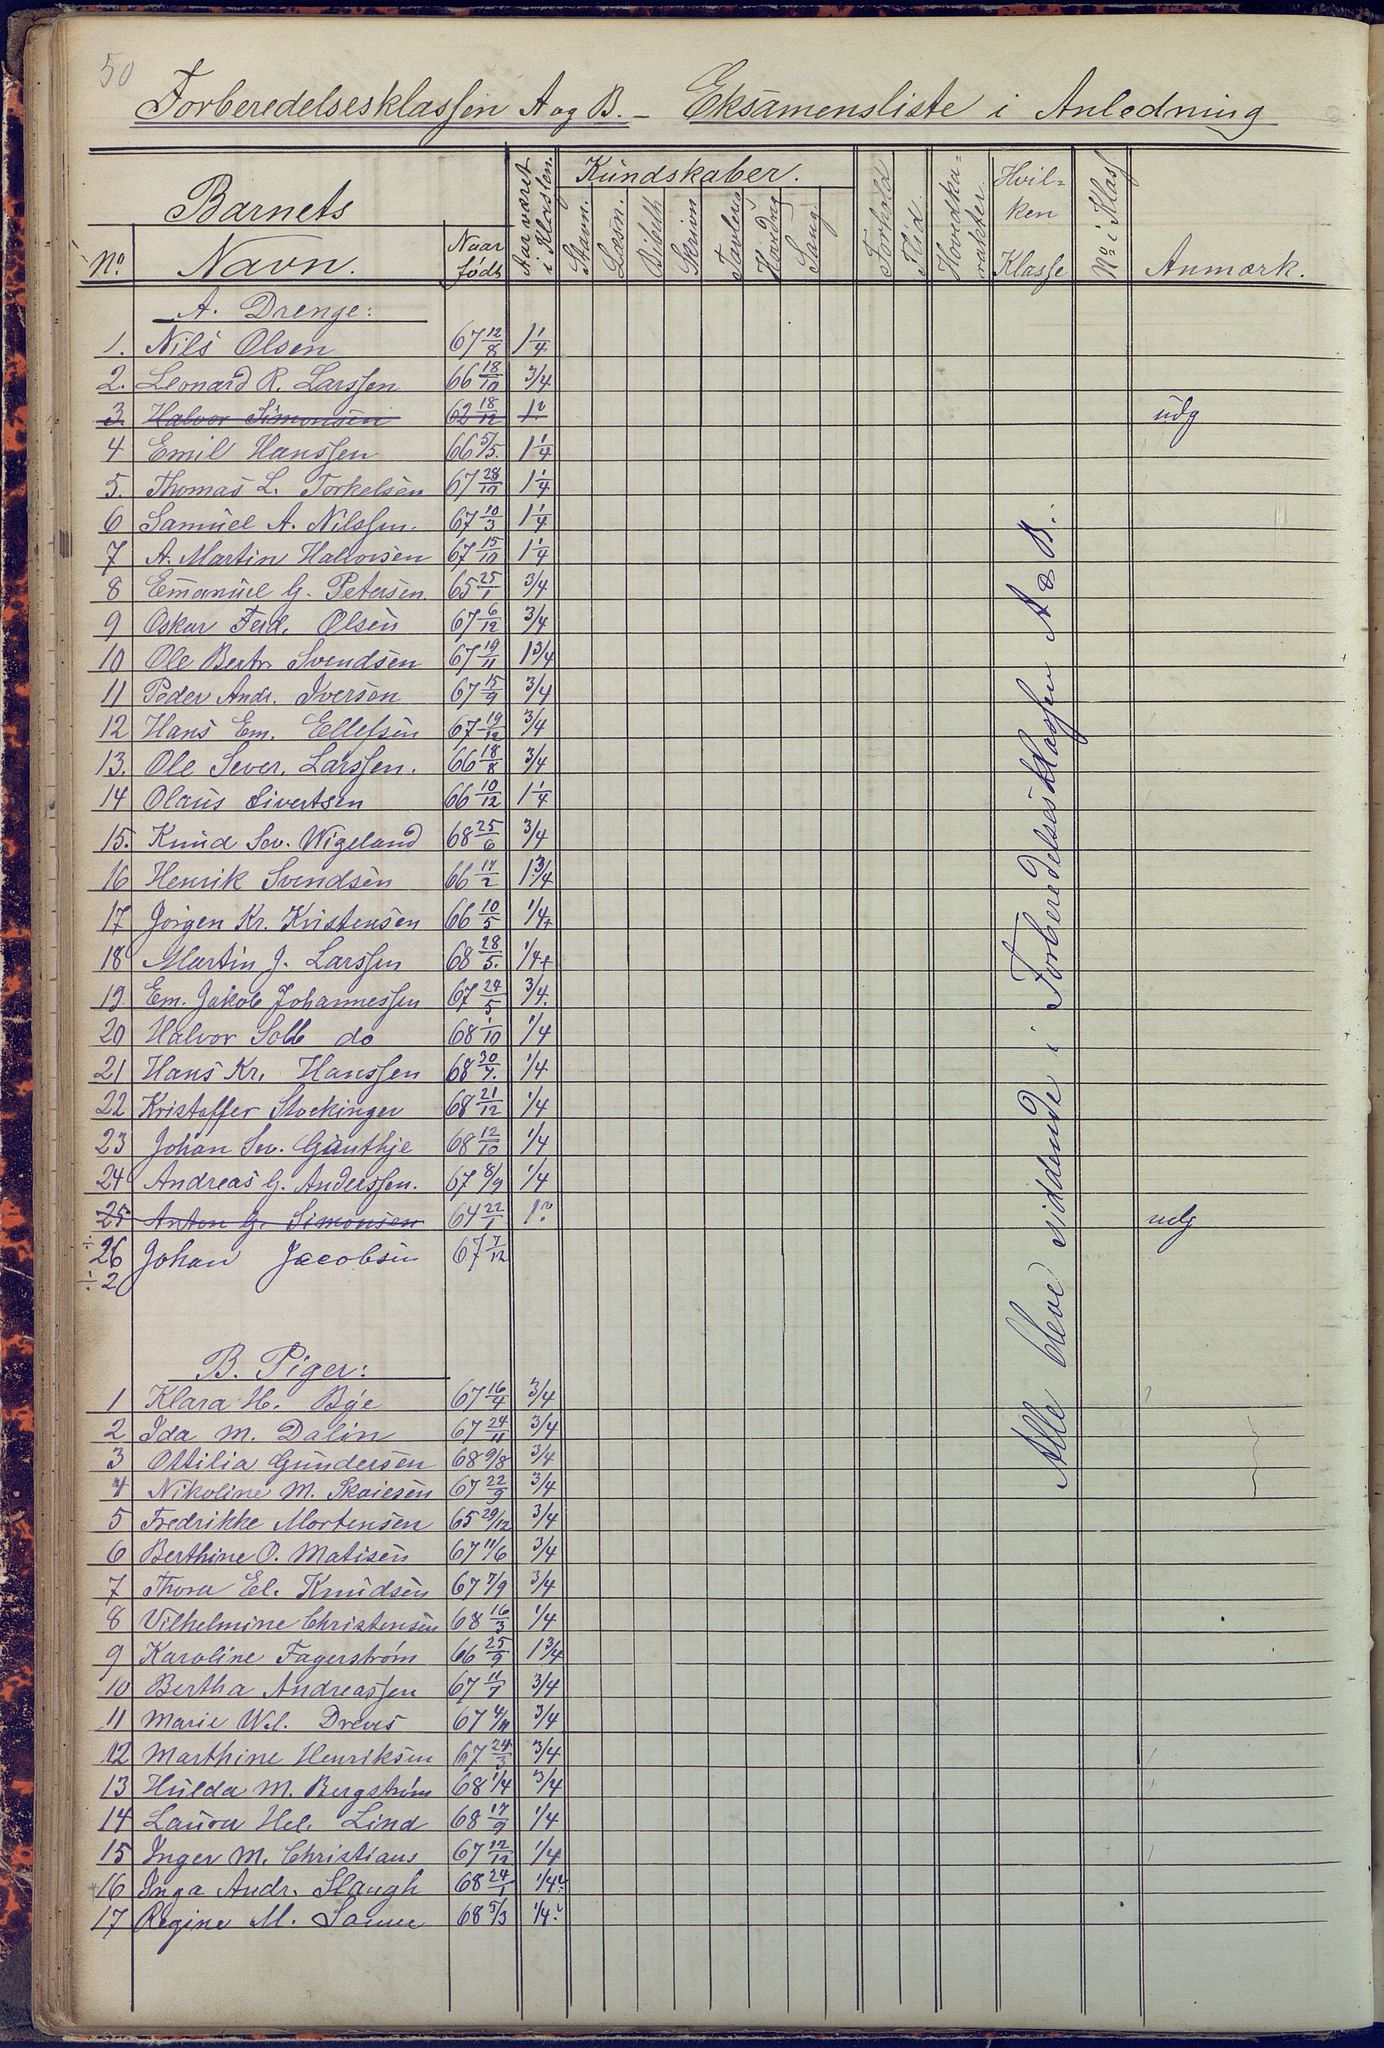 50
Forberedelsesklassen A og B. - Eksamensliste i Anledning
Barnets
No.
Navn.
Naar født
Aar været i Klassen.
Kundskaber.
Stavn.
Læsn.
Bibelh
Skrivn
Tavlereg
Sang.
Forhold
Flid.
Hovedkarakter.
Hvilken Klasse
No i Klass
Anmærk.
A. Drenge:
1. Nils Olsen 67 12/8 1 1/4
2. Leonard R. Larssen 66 18/10 3/4
3. Halvor Simonsen 62 18/12 1? udg
4 Emil Hanssen 66 5/5. 1 1/4
5. Thomas L. Torkelsen 67 28/10 1 1/4
6 Samuel A. Nilssen. 67 10/3 1 1/4
7 A. Martin Halvorsen 67 15/10 1 1/4
8 Emanuel G. Petersen. 65 25/1 3/4
9 Oskar Ferd. Olsen 67 6/12 3/4
10 Ole Bertr. Svendsen 67 19/11 1 3/4
11 Peder Andr. Iversen 67 15/9 3/4
12 Hans Em. Ellefsen 67 19/12 3/4
13. Ole Sever. Larssen. 66 18/8 3/4
14 Olaus Sivertsen 66 10/12 1 1/4
15. Knud Sev. Wigeland 68 25/6 3/4
16 Henrik Svendsen 66 17/2 1 3/4
17 Jörgen Kr. Kristensen 66 10/5 1/4+
18 Martin J. Larssen 68 28/5. 1/4+
19 Em. Jakob Johannessen 67 24/5 3/4.
20 Halvor Solb do 68 1/10 1/4
21 Hans Kr. Hanssen 68 30/7. 1/4
22 Kristoffer Stockinger 68 21/12 1/4
23 Johan Sev. Gunthje 68 12/10 1/4
24 Andreas G. Anderssen. 67 8/9 1/4
25 Anton G. Simonsen 64 22/1 1? udg
26 Johan Jacobsen 67 7/12
÷ 2
B. Piger:
1 Klara H. Bye 67 16/4 3/4
2 Ida M. Dalin 67 24/11 3/4
3 Ottilia Gundersen 68 9/8 3/4
4 Nikoline M. Skaiesen 67 22/9 3/4
5 Fredrikke Mortensen 65 29/12 3/4
6 Berthine O. Matisen 67 11/6 3/4
7 Thora El. Knudsen 67 7/9 3/4
8 Vilhelmine Christensen 68 16/3 1/4
9 Karoline Fagerström 66 25/9 1 3/4
10 Bertha Andreassen 67 11/7 3/4
11 Marie Wl. Drews 67 4/11 3/4
12 Marthine Henriksen 67 24/3 3/4
13 Hulda M. Bergström 68 1/4 3/4
14 Laura Hel. Lind 68 17/9 1/4
15 Inger M. Christians 67 12/12 1/4
16 Inga Andr. Slaugh 68 24/1 1/4?
17 Regine M. Sanne 68 5/3 1/4?
Alle bleve siddende i Forberedelsesklassen A & B.